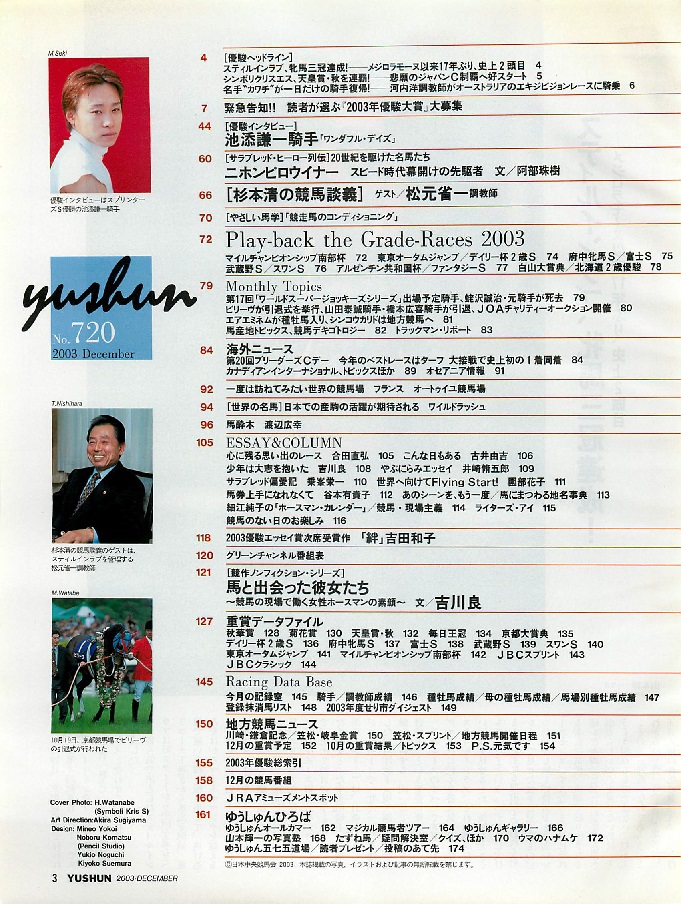 M.Seki
優駿インタビューはスプリンター
ズS優勝の池添謙一騎手
yushun
No.720
2003 December
T.Nishihara
杉本清の競馬談義のゲストは、
スティルインラブを管理する
松元省一調教師
M.Watabe
10月19日、京都競馬場でビリーヴ
の引退式が行われた
Cover Photo: H.Watanabe
(Symboli Kris S)
Art Direction:Akira Sugiyama
Design: Mineo Yokoi
Noboru Komatsu
(Pencil Studio)
Yukio Noguchi
Kiyoko Suemura
4 [優駿ヘッドライン]
スティルインラブ、牝馬三冠達成!──メジロラモーヌ以来17年ぶり、史上2頭目 4
シンボリクリスエス、天皇賞・秋を連覇!──悲願のジャパンC制覇へ好スタート 5
名手“カワチ”が一日だけの騎手復帰!──河内洋調教師がオーストラリアのエキジビションレースに騎乗 6
7 緊急告知!! 読者が選ぶ『2003年優駿大賞』大募集
44 [優駿インタビュー]
池添謙一騎手「ワンダフル・デイズ」
60 [サラブレッド・ヒーロー列伝]20世紀を駆けた名馬たち
ニホンピロウイナー スピード時代幕開けの先駆者 文/阿部珠樹
66 [杉本清の競馬談義] ゲスト/松元省一調教師
70 [やさしい馬学]「競走馬のコンディショニング」
72 Play-back the Grade-Races 2003
マイルチャンピオンシップ南部杯 72 東京オータムジャンプ/デイリー杯2歳S 74 府中牝馬S/富士S 75
武蔵野S/スワンS 76 アルゼンチン共和国杯/ファンタジーS 77 白山大賞典/北海道2歳優駿 78
79 Monthly Topics
第17回「ワールドスーパージョッキーズシリーズ」出場予定騎手、蛯沢誠治・元騎手が死去 79
ビリーヴが引退式を挙行、山田泰誠騎手・橋本広喜騎手が引退、JOAチャリティーオークション開催 80
エアエミネムが種牡馬入り、シンコウカリドは地方競馬へ 81
馬産地トピックス、競馬デキゴトロジー 82 トラックマン・リポート 83
84 海外ニュース
第20回ブリーダーズCデー 今年のベストレースはターフ 大接戦で史上初の1着同着 84
カナディアンインターナショナル、トピックスほか 89 オセアニア情報 91
92 一度は訪ねてみたい世界の競馬場 フランス オートゥイユ競馬場
94 [世界の名馬]日本での産駒の活躍が期待される ワイルドラッシュ
96 馬酔木 渡辺広幸
105 ESSAY&COLUMN
心に残る思い出のレース 合田直弘 105 こんな日もある 古井由吉 106
少年は大志を抱いた 吉川良 108 やぶにらみエッセイ 井崎脩五郎 109
サラブレッド偏愛記 乗峯栄一 110 世界へ向けてFlying Start! 園部花子 111
馬券上手になれなくて 谷本有貴子 112 あのシーンを、もう一度/馬にまつわる地名事典 113
細江純子の「ホースマン・カレンダー」/競馬・現場主義 114 ライターズ・アイ 115
競馬のない日のお楽しみ 116
118 2003優駿エッセイ賞次席受賞作 「絆」吉田和子
120 グリーンチャンネル番組表
121 [競作ノンフィクション・シリーズ]
馬と出会った彼女たち
〜競馬の現場で働く女性ホースマンの素顔〜 文/吉川良
127 重賞データファイル
秋華賞 128 菊花賞 130 天皇賞・秋 132 毎日王冠 134 京都大賞典 135
デイリー杯2歳S 136 府中牝馬S 137 富士S 138 武蔵野S 139 スワンS 140
東京オータムジャンプ 141 マイルチャンピオンシップ南部杯 142 JBCスプリント 143
JBCクラシック 144
145 Racing Data Base
今月の記録室 145 騎手/調教師成績 146 種牡馬成績/母の種牡馬成績/馬場別種牡馬成績 147
登録抹消馬リスト 148 2003年度せり市ダイジェスト 149
150 地方競馬ニュース
川崎・鎌倉記念/笠松・岐阜金賞 150 笠松・スプリント/地方競馬開催日程 151
12月の重賞予定 152 10月の重賞結果/トピックス 153 P.S.元気です 154
155 2003年優駿総索引
158 12月の競馬番組
160 JRAアミューズメントスポット
161 ゆうしゅんひろば
ゆうしゅんオールカマー 162 マジカル競馬者ツアー 164 ゆうしゅんギャラリー 166
山本輝一の写真塾 168 たずね馬/疑問解決室/クイズ、ほか 170 ウマのハナムケ 172
ゆうしゅん五七五道場/読者プレゼント/投稿のあて先 174
©日本中央競馬会 2003 本誌掲載の写真、イラストおよび記事の無断転載を禁じます。
3 YUSHUN 2003-DECEMBER